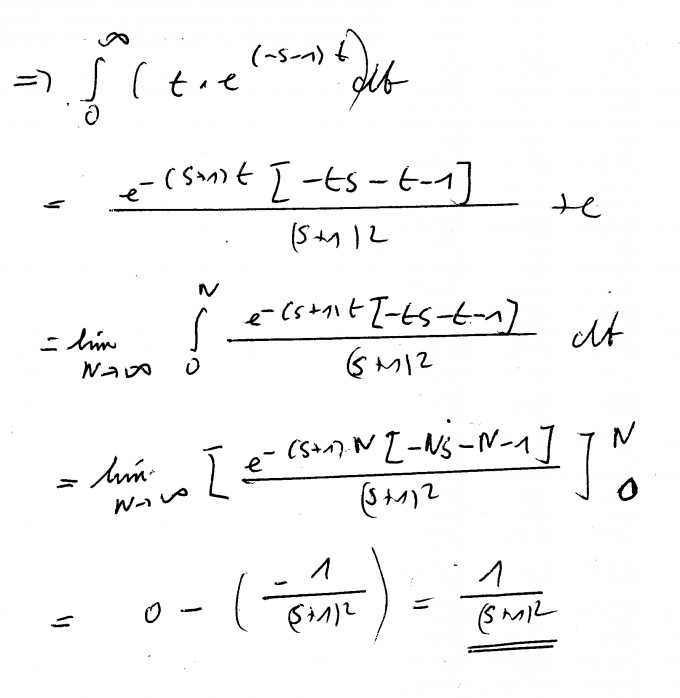 => ∫₀^∞ ( t · e^{(-s-1) t} ) dt
= \frac{e^{-(s+1) t} [-ts - t - 1]}{(s+1)^2} + c
= lim_{N→∞} ∫₀^N \frac{e^{-(s+1) t} [-ts - t - 1]}{(s+1)^2} dt
= lim_{N→∞} [ \frac{e^{-(s+1) N} [-Ns - N - 1]}{(s+1)^2} ]₀^N
= 0 - ( \frac{-1}{(s+1)^2} ) = \frac{1}{(s+1)^2}